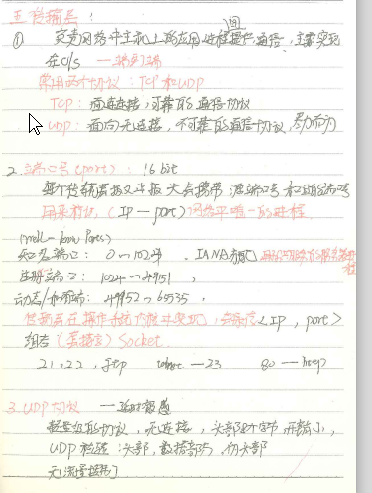 五 传输层:
① 实现网络中主机上的应用进程间提供通信,主要实现
在 c/s —— 端到端
常用两个协议:TCP和UDP
TCP:面向连接,可靠的通信协议
UDP:面向无连接,不可靠的通信协议,尽力而为
2. 端口号(port): 16 bit
每个传输层报文中报文头会携带:源端口号和目的端口号
用来标识(IP — port)网络中唯一的进程
(well-know Ports)
知名端口: 0 ~ 1024 . IANA
注册端口: 1024 ~ 49151 ,
动态/私有端: 49152 ~ 65535 ,
传输层在操作系统内核中实现,<IP , port>
组者(套接字)Socket.
21,22 , ftp —23 80 — http
3. UDP协议 —
无连接,头部8个字节,开销小,
UDP 头部,数据部分,伪头部